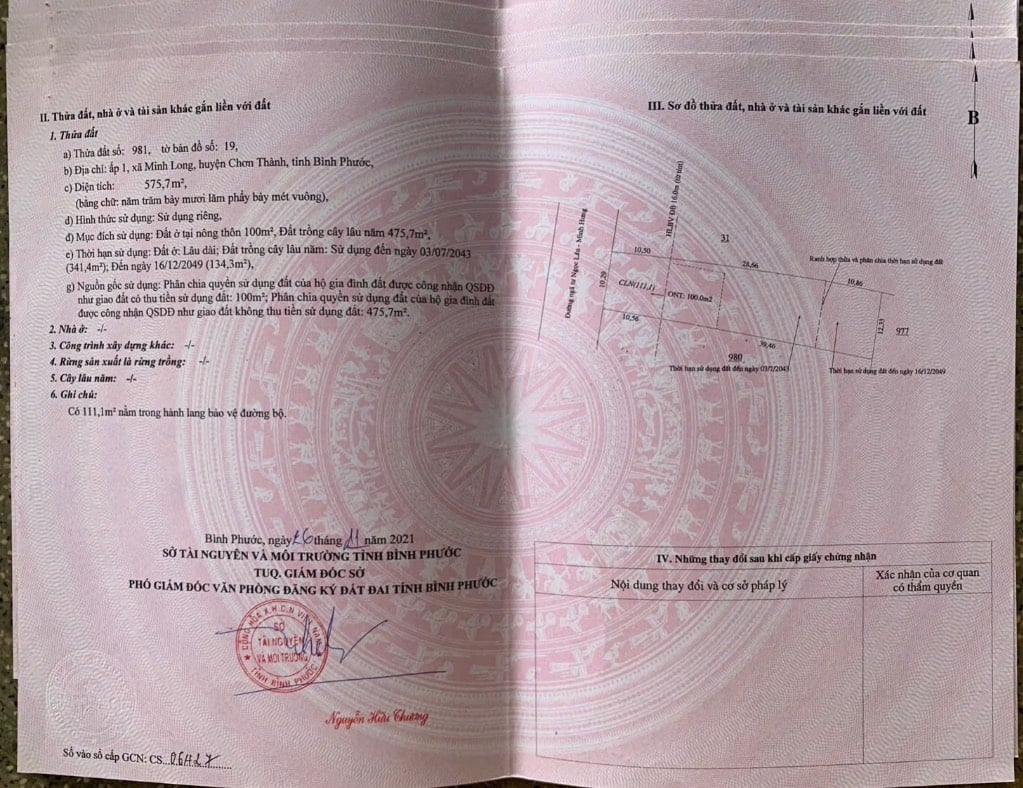 II. Thửa đất, nhà ở và tài sản khác gắn liền với đất
1. Thửa đất
a) Thửa đất số: 981, tờ bản đồ số: 19,
b) Địa chỉ: ấp 1, xã Minh Long, huyện Chơn Thành, tỉnh Bình Phước,
c) Diện tích: 575,7m²,
(bằng chữ: năm trăm bảy mươi lăm phẩy bảy mét vuông),
d) Hình thức sử dụng: Sử dụng riêng,
đ) Mục đích sử dụng: Đất ở tại nông thôn 100m², Đất trồng cây lâu năm 475,7m²,
e) Thời hạn sử dụng: Đất ở: Lâu dài; Đất trồng cây lâu năm: Sử dụng đến ngày 03/07/2043
(341,4m²); Đến ngày 16/12/2049 (134,3m²),
g) Nguồn gốc sử dụng: Phân chia quyền sử dụng đất của hộ gia đình đất được công nhận QSDĐ
như giao đất có thu tiền sử dụng đất: 100m²; Phân chia quyền sử dụng đất của hộ gia đình đất
được công nhận QSDĐ như giao đất không thu tiền sử dụng đất: 475,7m².
2. Nhà ở: -/-
3. Công trình xây dựng khác: -/-
4. Rừng sản xuất là rừng trồng: -/-
5. Cây lâu năm: -/-
6. Ghi chú:
Có 111,1m² nằm trong hành lang bảo vệ đường bộ.
Bình Phước, ngày 26 tháng 11 năm 2021
SỞ TÀI NGUYÊN VÀ MÔI TRƯỜNG TỈNH BÌNH PHƯỚC
TUQ. GIÁM ĐỐC SỞ
PHÓ GIÁM ĐỐC VĂN PHÒNG ĐĂNG KÝ ĐẤT ĐAI TỈNH BÌNH PHƯỚC
CỘNG HÒA X.H.C.N VIỆT NAM
SỞ
TÀI NGUYÊN
VÀ MÔI TRƯỜNG
TỈNH BÌNH PHƯỚC
Nguyễn Hữu Thương
Số vào sổ cấp GCN: CS 06427
III. Sơ đồ thửa đất, nhà ở và tài sản khác gắn liền với đất
B
Đường ngã tư Ngọc Lầu - Minh Hưng
HLBV ĐB 16,0m (từ tim)
31
10,50
28,66
Ranh hợp thửa và phân chia thời hạn sử dụng đất
10,86
10,20
CLN(111,1)
ONT: 100.0m2
12,33
977
10,56
39,46
980
Thời hạn sử dụng đất đến ngày 03/7/2043
Thời hạn sử dụng đất đến ngày 16/12/2049
IV. Những thay đổi sau khi cấp giấy chứng nhận
Nội dung thay đổi và cơ sở pháp lý
Xác nhận của cơ quan
có thẩm quyền